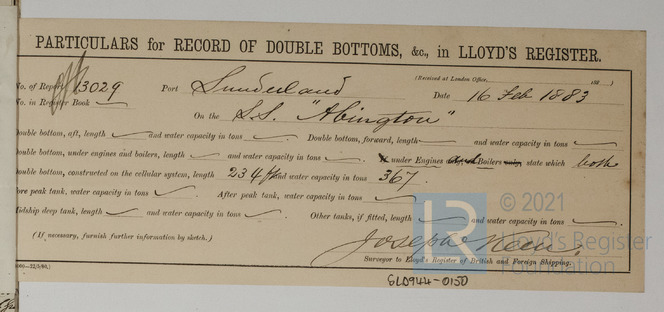 PARTICULARS for RECORD OF DOUBLE BOTTOMS, &c., in LLOYD'S REGISTER.
(Received at London Office, 188 )
No. of Report 13029 Port Sunderland Date 16 Feb 1883
No. in Register Book On the S.S. "Abington"
Double bottom, aft, length and water capacity in tons Double bottom, forward, length and water capacity in tons
Double bottom, under engines and boilers, length and water capacity in tons under Engines Boilers only, state which both
Double bottom, constructed on the cellular system, length 234 ft and water capacity in tons 367.
Fore peak tank, water capacity in tons After peak tank, water capacity in tons
Midship deep tank, length and water capacity in tons Other tanks, if fitted, length and water capacity in tons
(If necessary, furnish further information by sketch.) Joseph
Surveyor to Lloyd's Register of British and Foreign Shipping.
SLD944-0150
© 2021
LR Lloyd's Register
Foundation